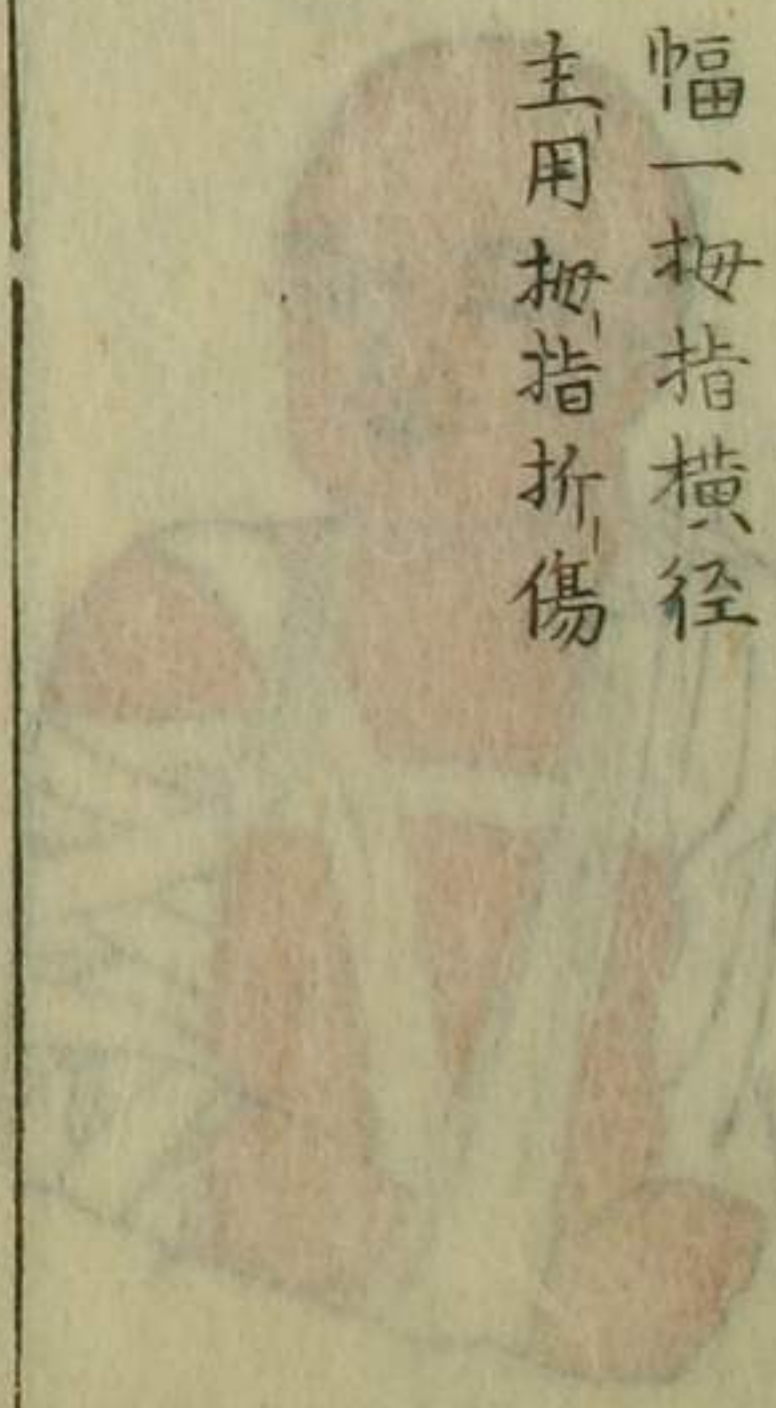 幅一拇指横径
主用拇指折傷